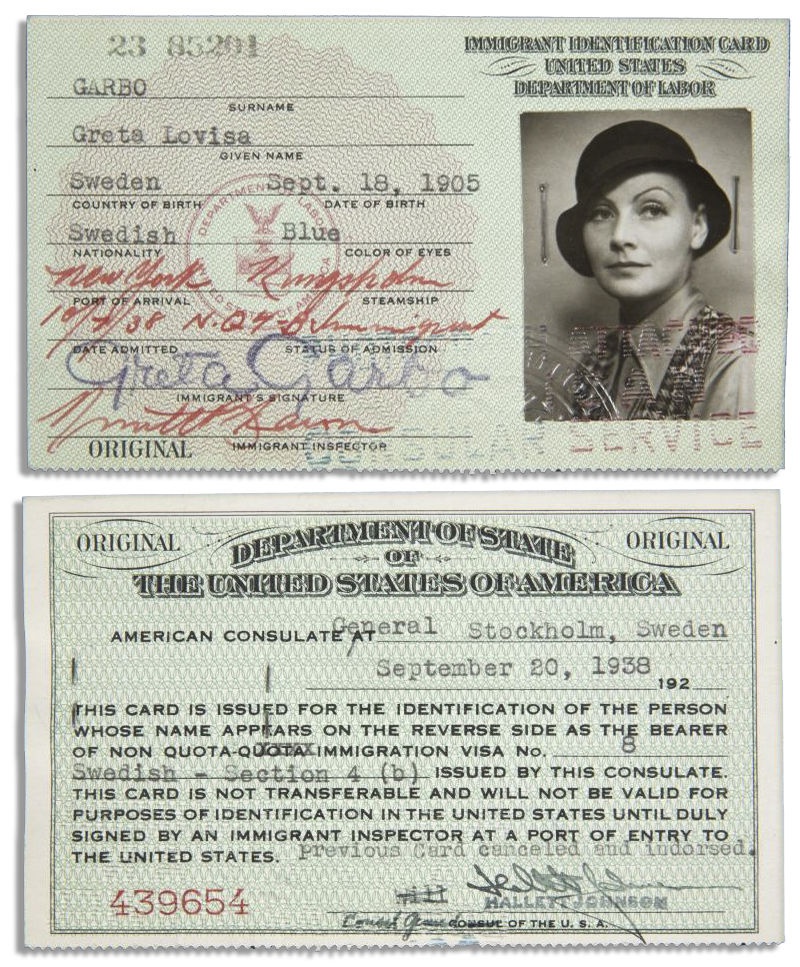 23 85291
IMMIGRANT IDENTIFICATION CARD
UNITED STATES
DEPARTMENT OF LABOR
GARBO
SURNAME
Greta Lovisa
GIVEN NAME
Sweden Sept. 18, 1905
COUNTRY OF BIRTH DATE OF BIRTH
Swedish Blue
NATIONALITY COLOR OF EYES
DEPARTMENT LABOR
New York Kungsholm
PORT OF ARRIVAL STEAMSHIP
10/7/38 N.Q 4-B Immigrant
DATE ADMITTED STATUS OF ADMISSION
Greta Garbo
IMMIGRANT'S SIGNATURE
ORIGINAL IMMIGRANT INSPECTOR
CONSULAR SERVICE
ORIGINAL DEPARTMENT OF STATE ORIGINAL
OF
THE UNITED STATES OF AMERICA
AMERICAN CONSULATE AT General Stockholm, Sweden
September 20, 1938 192
THIS CARD IS ISSUED FOR THE IDENTIFICATION OF THE PERSON
WHOSE NAME APPEARS ON THE REVERSE SIDE AS THE BEARER
OF NON QUOTA-QUOTA IMMIGRATION VISA No. 8
Swedish - Section 4 (b) ISSUED BY THIS CONSULATE.
THIS CARD IS NOT TRANSFERABLE AND WILL NOT BE VALID FOR
PURPOSES OF IDENTIFICATION IN THE UNITED STATES UNTIL DULY
SIGNED BY AN IMMIGRANT INSPECTOR AT A PORT OF ENTRY TO
THE UNITED STATES. Previous Card canceled and indorsed.
439654
HALLETT JOHNSON
Consul General CONSUL OF THE U. S. A.